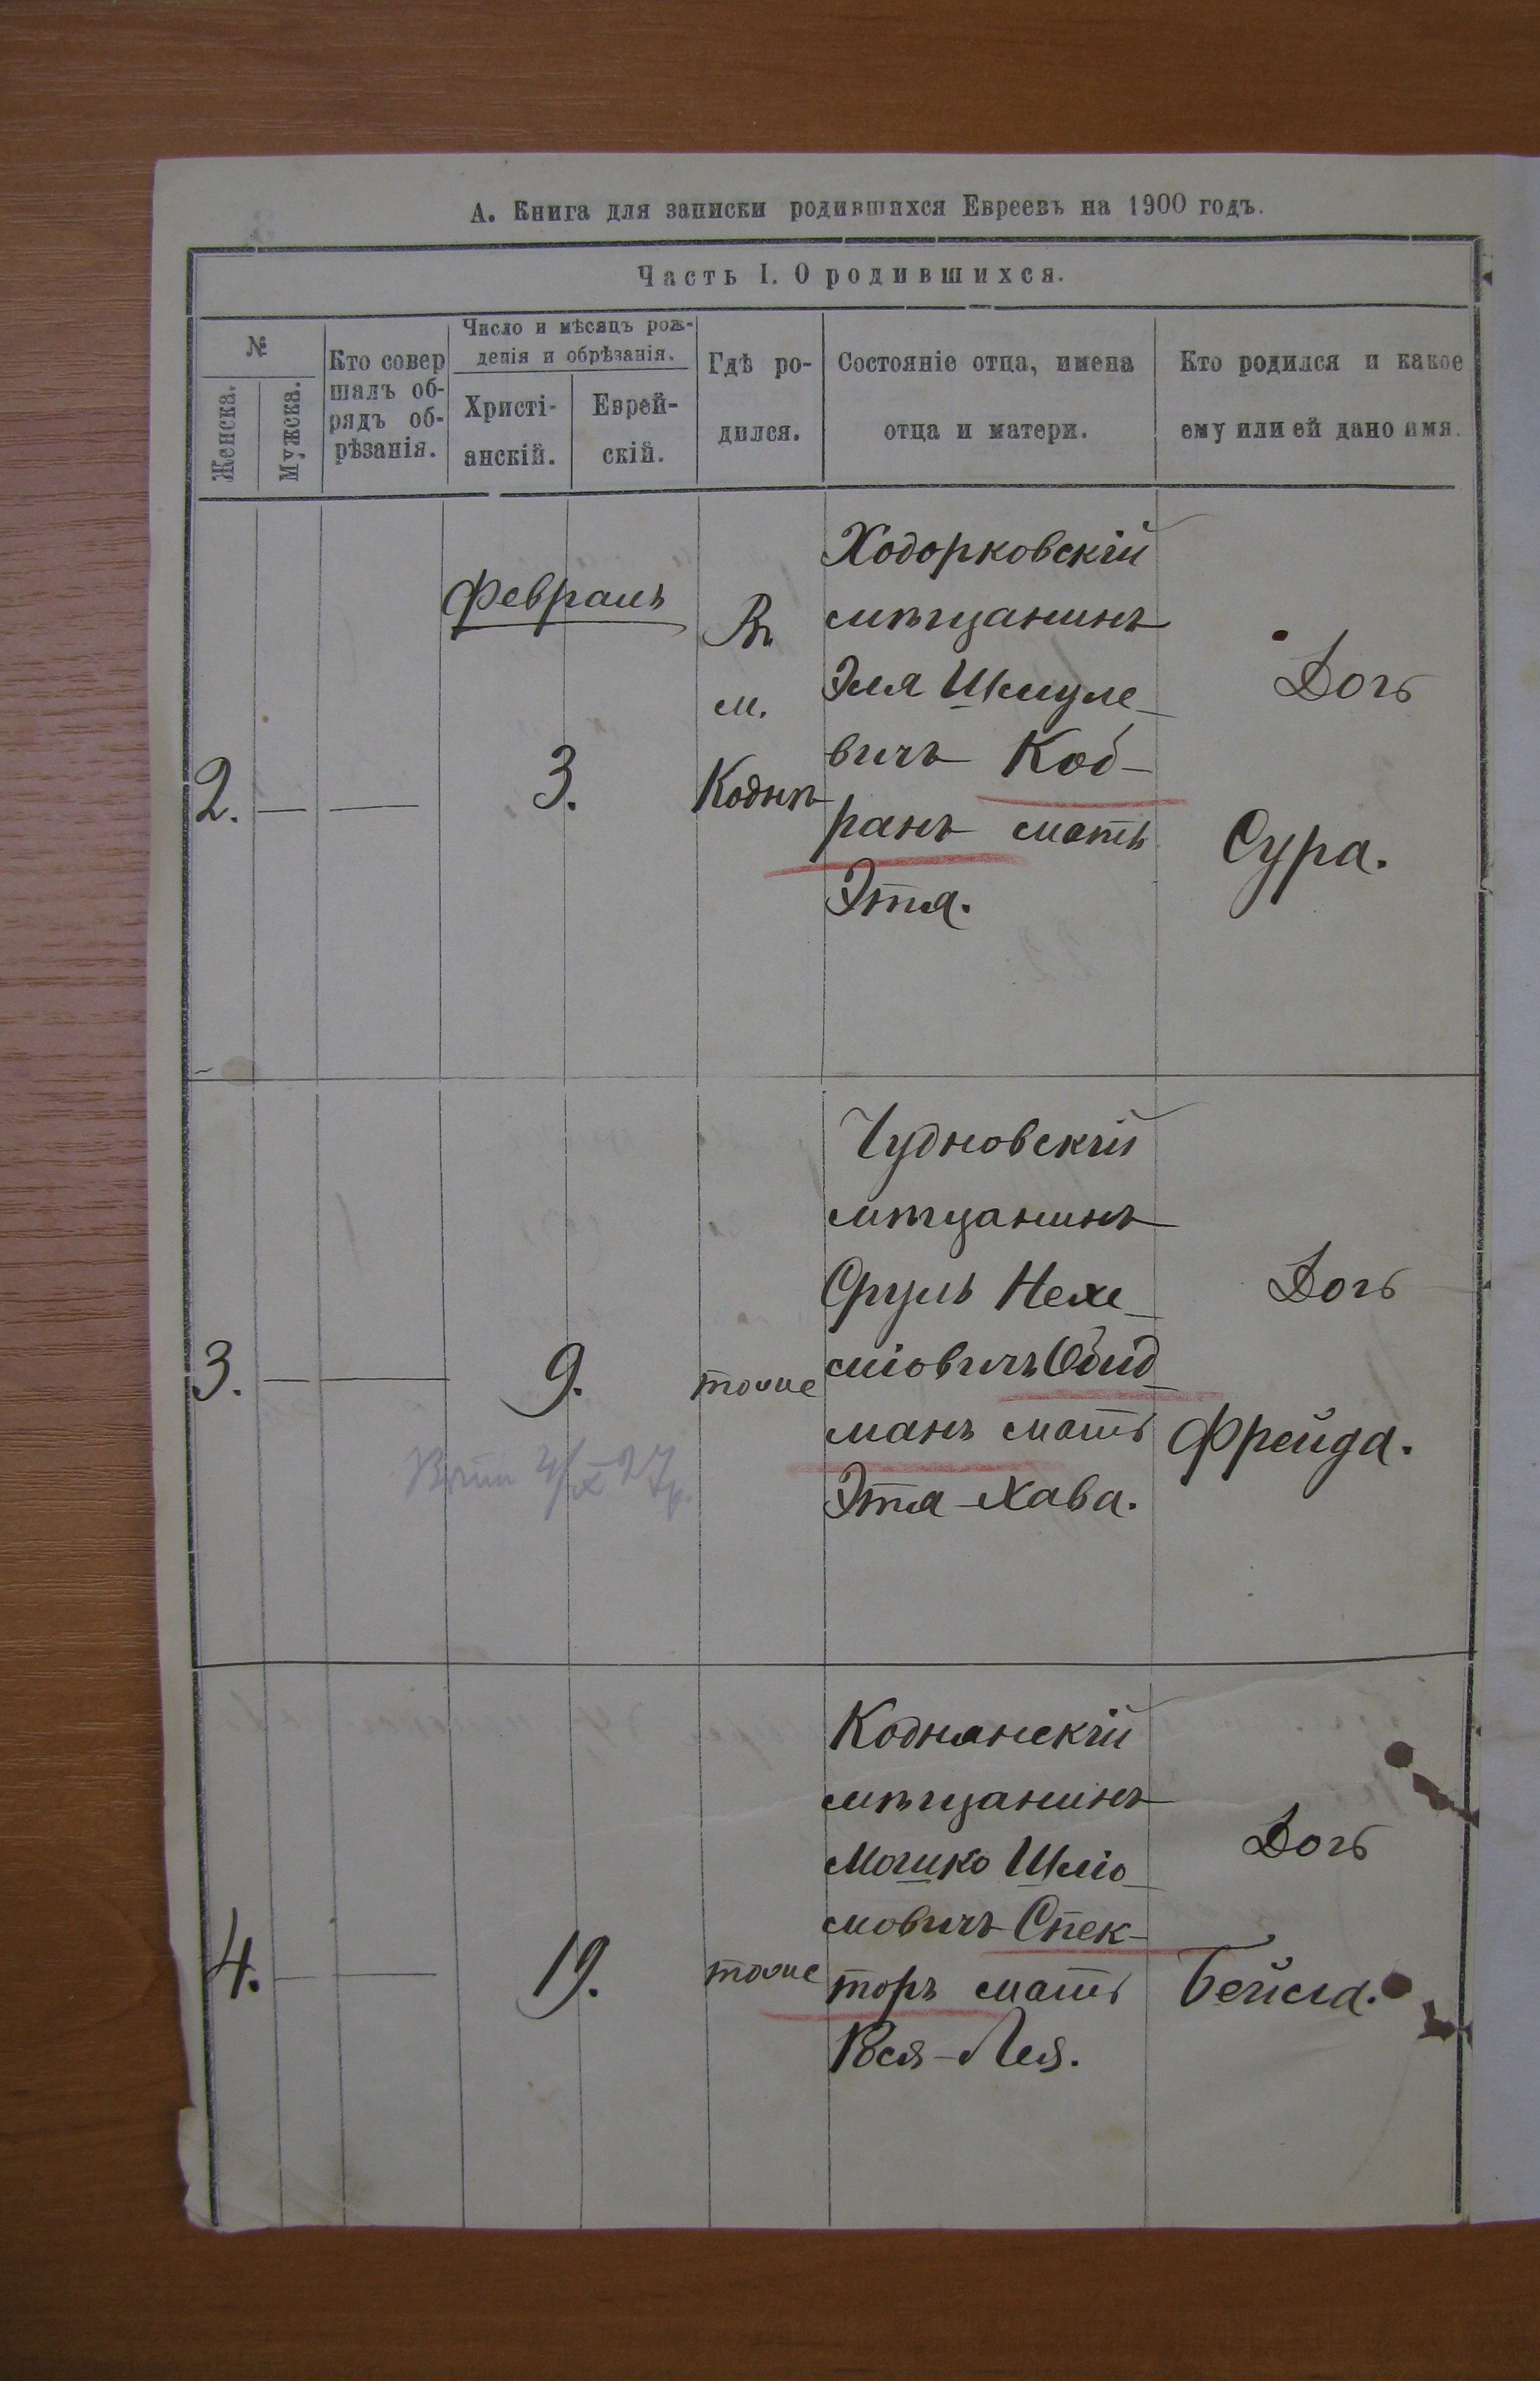 А. Книга для записки родившихся Евреевъ на 1900 годъ.
Часть I. О родившихся.
№
Женска.
Мужска.
Кто совер
шалъ об-
рядъ об-
рѣзанія.
Число и мѣсяцъ рож-
денія и обрѣзанія.
Христі-
анскій.
Еврей-
скій.
Гдѣ ро-
дился.
Состояніе отца, имена
отца и матери.
Кто родился и какое
ему или ей дано имя.
2.
—
—
Февраль
3.
Въ
м.
Коднѣ
Ходорковскій
мѣщанинъ
Эля Шмуле-
вичъ Коб-
ранъ мать
Этя.
Дочь
Сура.
3.
—
—
9.
тоже
Чудновскій
мѣщанинъ
Сруль Нехе-
міовичъ
манъ мать
Этя-Хава.
Дочь
Фрейда.
4.
—
—
19.
тоже
Коднянскій
мѣщанинъ
Мошко Шліо-
мовичъ Спек-
торъ мать
Лея.
Дочь
Бейла.